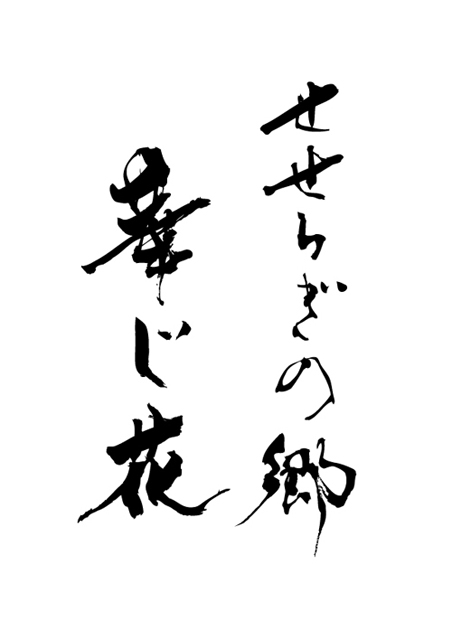 せせらぎの郷
華じ花